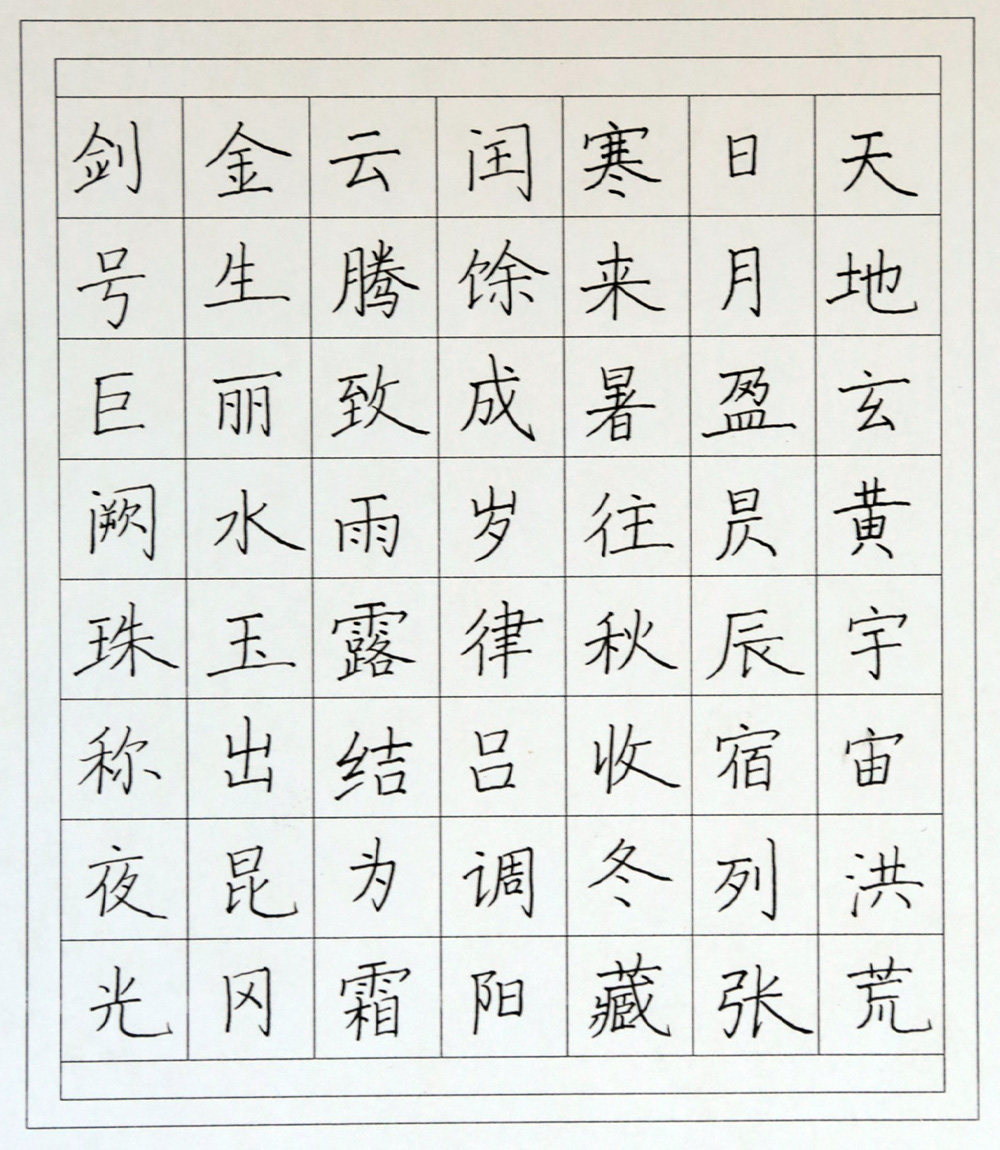 天地玄黄宇宙洪荒
日月盈昃辰宿列张
寒来暑往秋收冬藏
闰馀成岁律吕调阳
云腾致雨露结为霜
金生丽水玉出昆冈
剑号巨阙珠称夜光